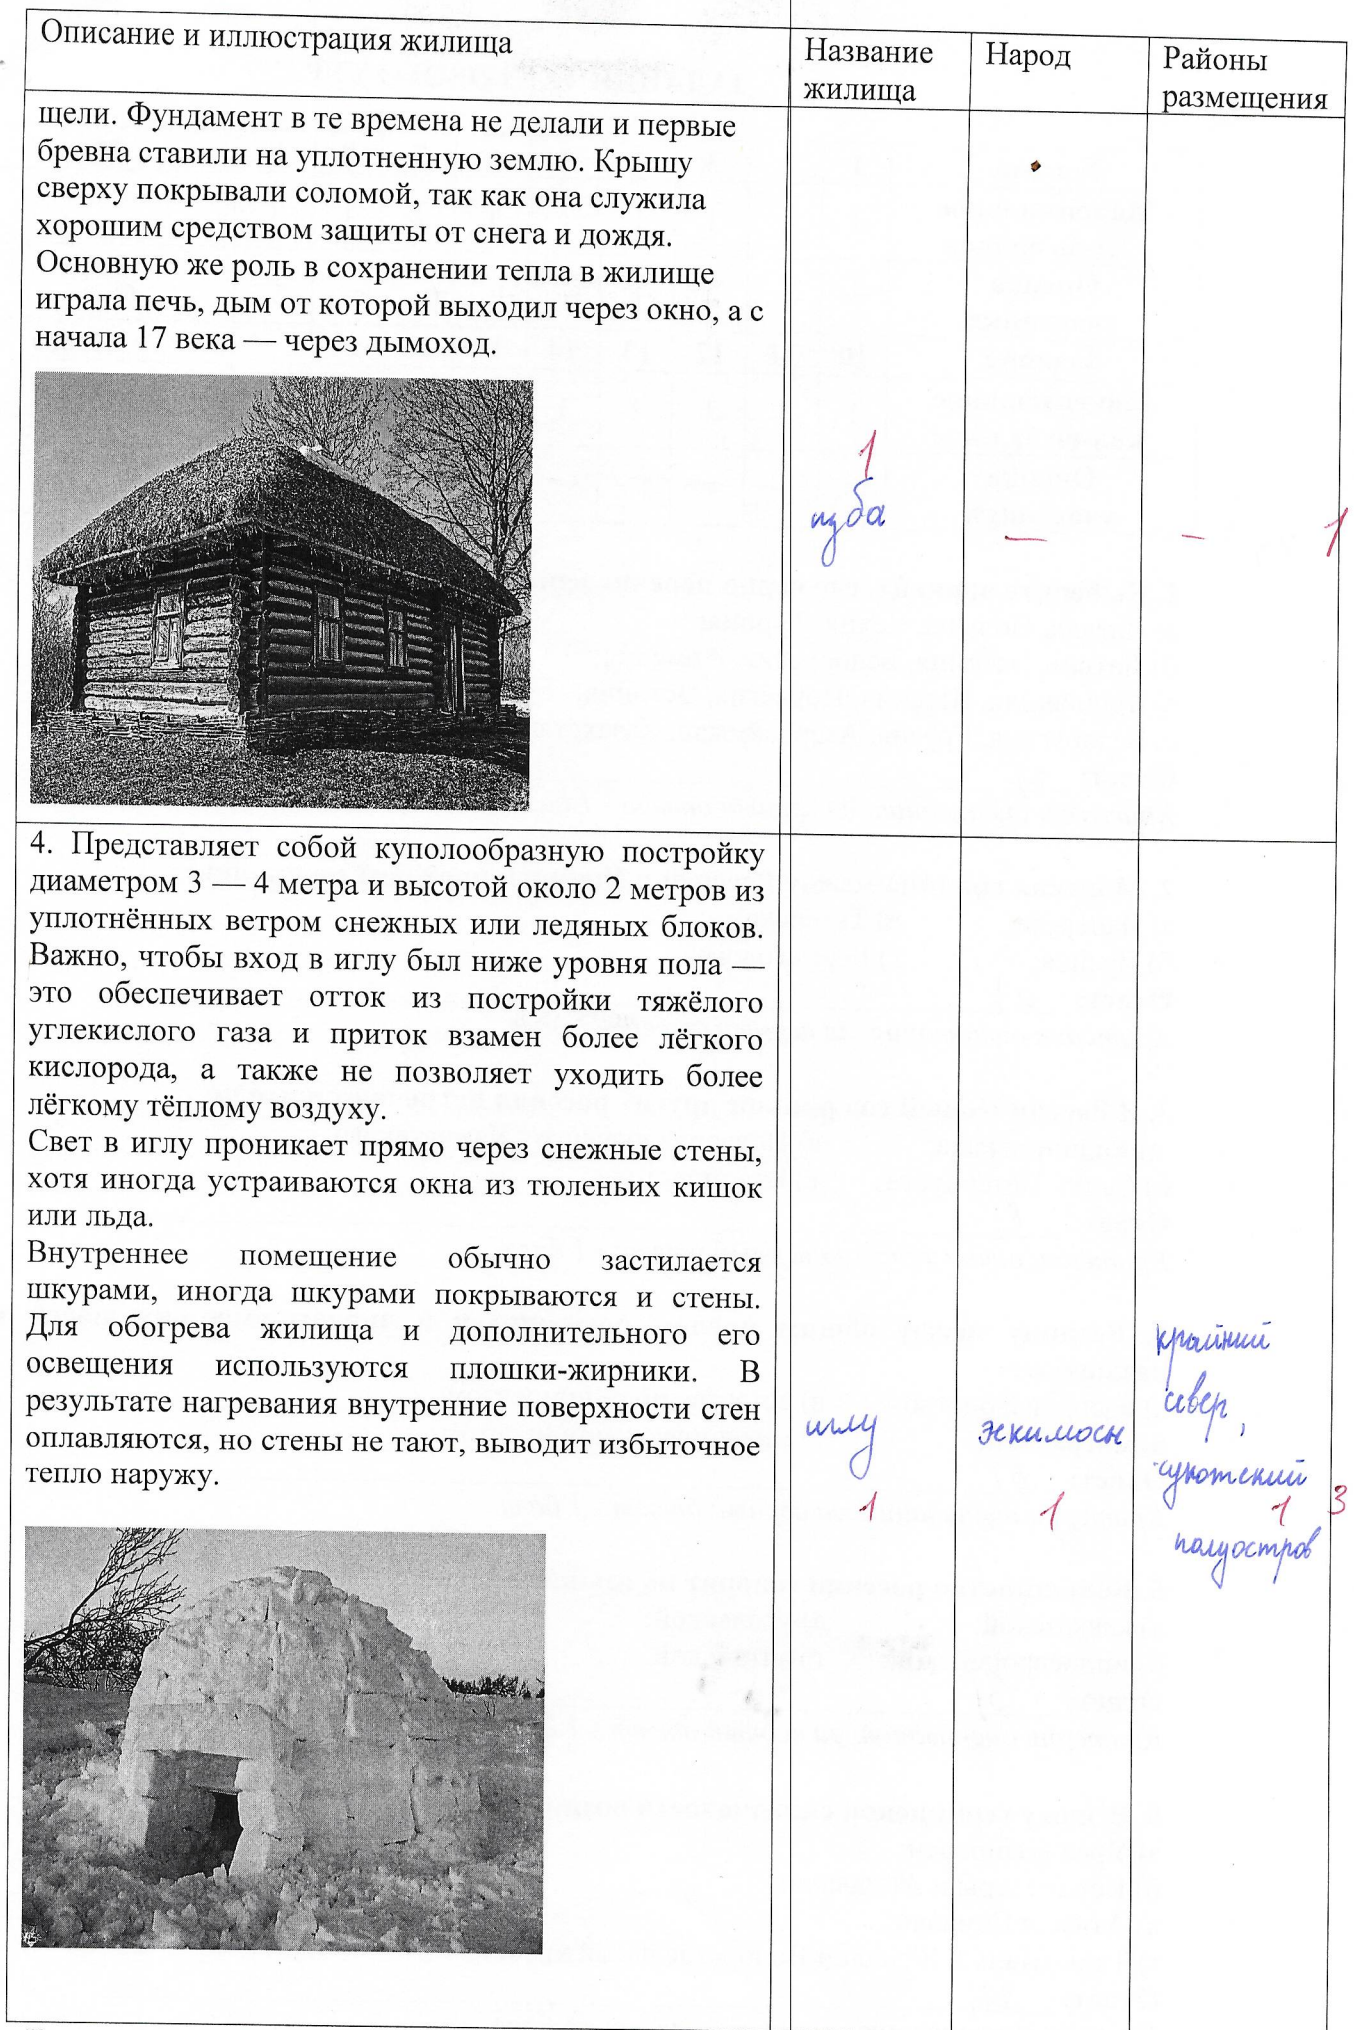 Описание и иллюстрация жилища
Название
жилища
Народ
Районы
размещения
щели. Фундамент в те времена не делали и первые
бревна ставили на уплотненную землю. Крышу
сверху покрывали соломой, так как она служила
хорошим средством защиты от снега и дождя.
Основную же роль в сохранении тепла в жилище
играла печь, дым от которой выходил через окно, а с
начала 17 века — через дымоход.
1
изба
—
—
1
4. Представляет собой куполообразную постройку
диаметром 3 — 4 метра и высотой около 2 метров из
уплотнённых ветром снежных или ледяных блоков.
Важно, чтобы вход в иглу был ниже уровня пола —
это обеспечивает отток из постройки тяжёлого
углекислого газа и приток взамен более лёгкого
кислорода, а также не позволяет уходить более
лёгкому тёплому воздуху.
Свет в иглу проникает прямо через снежные стены,
хотя иногда устраиваются окна из тюленьих кишок
или льда.
Внутреннее помещение обычно застилается
шкурами, иногда шкурами покрываются и стены.
Для обогрева жилища и дополнительного его
освещения используются плошки-жирники. В
результате нагревания внутренние поверхности стен
оплавляются, но стены не тают, выводит избыточное
тепло наружу.
иглу
1
эскимосы
1
крайний
север,
чукотский
1
3
полуостров